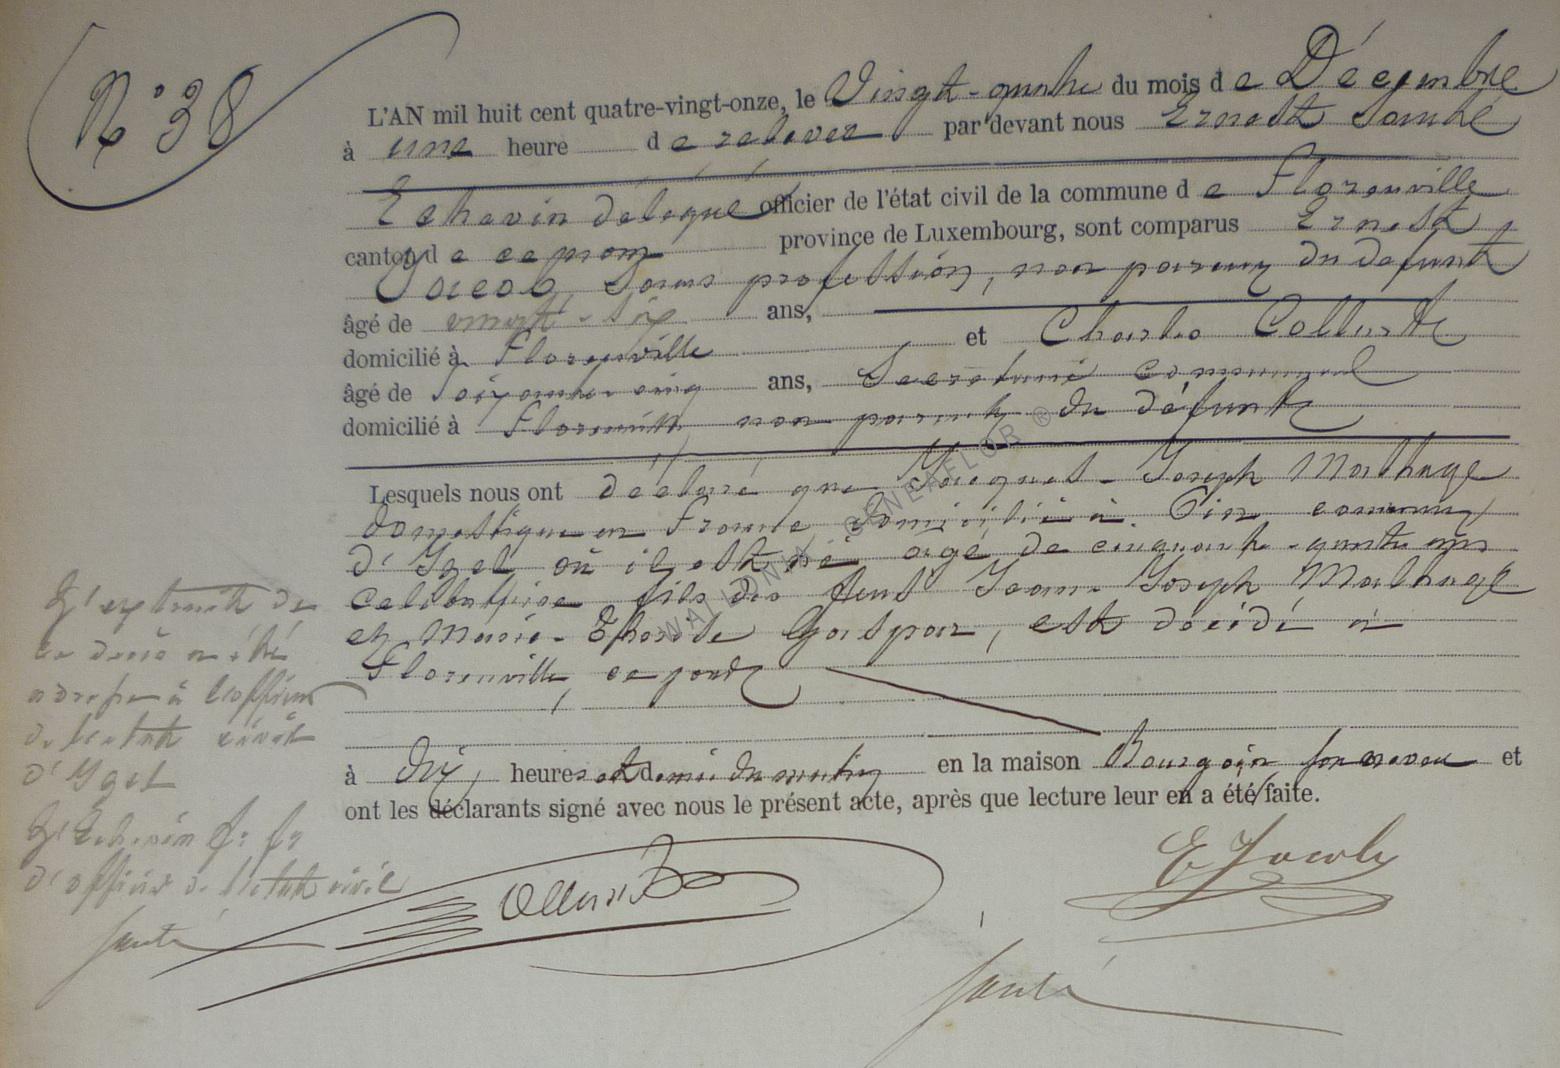 N° 38
L'AN mil huit cent quatre-vingt-onze, le Vingt-quatre du mois de Décembre
à une heure de relevée par devant nous Ernest Santé
Echevin délégué officier de l'état civil de la commune de Florenville
canton de ce nom province de Luxembourg, sont comparus Ernest
Jacob, sans profession, non parent du défunt
âgé de vingt-six ans,
domicilié à Florenville et Charles Collust
âgé de soixante-cinq ans, Secrétaire communal
domicilié à Florenville non parent du défunt
Lesquels nous ont déclaré que Jacques-Joseph Malhage
domestique en France domicilié à Pin commune
d'Izel où il est né âgé de cinquante-quatre ans
célibataire fils des feus Jean-Joseph Malhage
et Marie-Thérèse Gaspar, est décédé à
Florenville ce jour
à dix heures et demie du matin en la maison Bourgoin son neveu et
ont les déclarants signé avec nous le présent acte, après que lecture leur en a été faite.
L'extrait de
ce décès a été
adressé à l'officier
de l'état civil
d'Izel
L'Echevin ff. fs
d'officier de l'état civil
Santé
E Jacob
Santé
WALLONIA GENEAFLOR ®